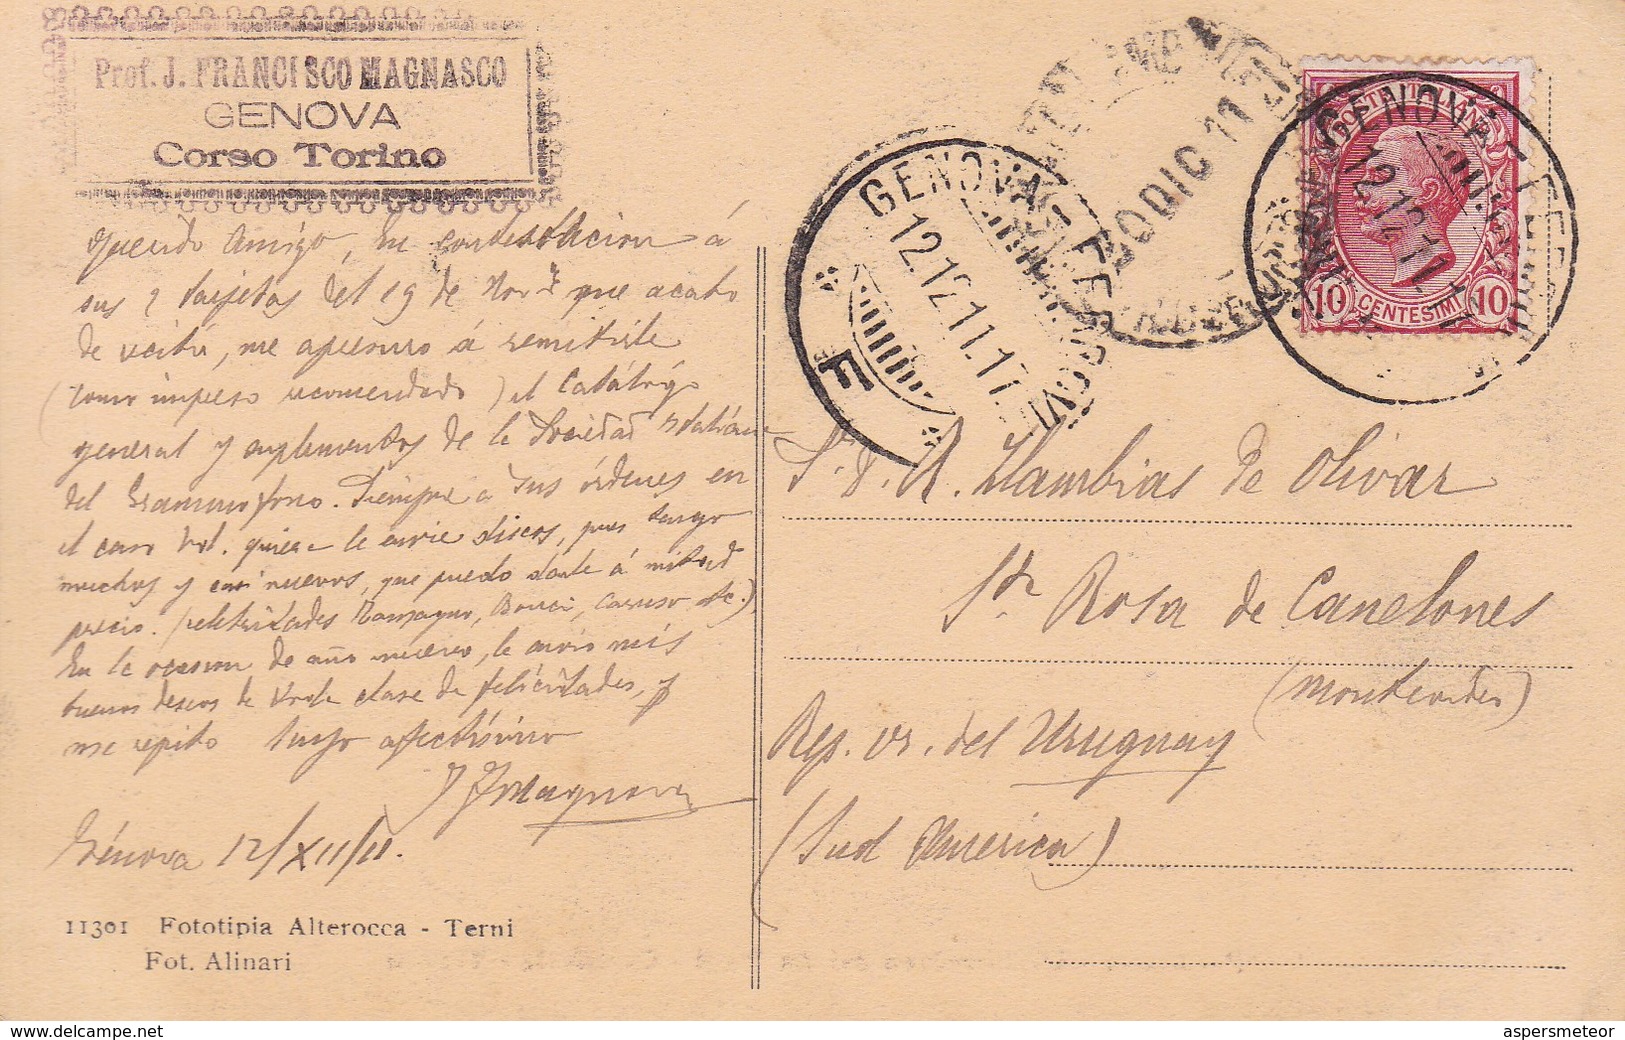 Prof. J. FRANCISCO MAGNASCO
GENOVA
Corso Torino
Querido Amigo, en contestacion á
sus 2 tarjetas del 19 de Nov.re que acabo
de recibir, me apresuro á remitirle
(como impreso recomendado) el Catálogo
general y suplementos de la Sociedad Italiana
del Grammofono. Siempre a sus órdenes en
el caso Vd. quiera le envie discos, pues tengo
muchos y casi nuevos, que puedo darle á mitad
precio. (celebridades Bonci, Caruso etc.)
En la ocasion de año nuevo, le envio mis
buenos deseos de toda clase de felicidades, y
me repito suyo afectísimo
J F Magnasco
Génova 12/XII/11.
11301 Fototipia Alterocca - Terni
Fot. Alinari
GENOVA FERROVIA
12.12.11.17
E
20 DIC 11
POSTE ITALIANE
10 CENTESIMI 10
GENOVA FERROVIA
12.12.11.17
Sr. D. A. Llambias de Olivar
Sta Rosa de Canelones
(Montevideo)
Rep. Or. del Uruguay
(Sud America)
aspersmeteor